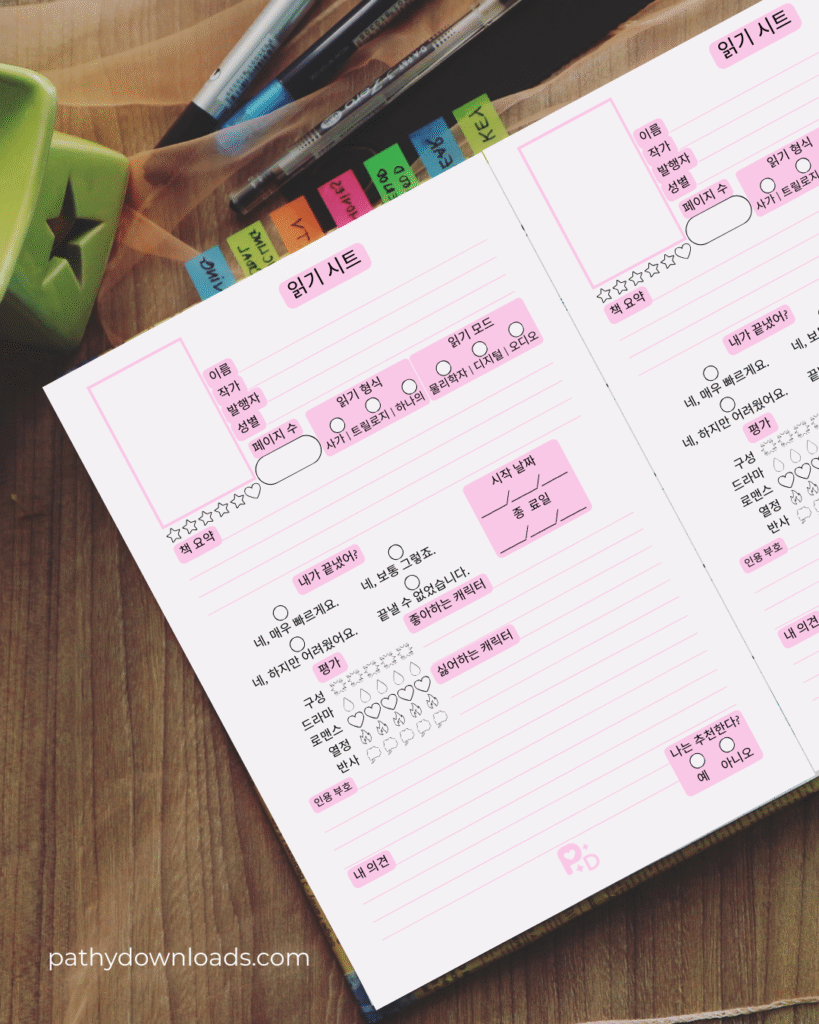 KEY
읽기 시트
이름
작가
발행자
성별
페이지 수
읽기 형식
사가 | 트릴로지 | 하나의
읽기 모드
물리학자 | 디지털 | 오디오
책 요약
시작 날짜
__/__/__
종 료일
__/__/__
내가 끝냈어?
네, 매우 빠르게요.
네, 보통 그렇죠.
네, 하지만 어려웠어요.
끝낼 수 없었습니다.
좋아하는 캐릭터
평가
싫어하는 캐릭터
구성
드라마
로맨스
열정
반사
인용 부호
나는 추천한다?
예
아니오
내 의견
P+D
읽기 시트
이름
작가
발행자
성별
페이지 수
읽기 형식
사가 | 트릴로지
책 요약
내가 끝냈어?
네, 매우 빠르게요.
네, 하지만 어려웠어요.
평가
구성
드라마
로맨스
열정
반사
인용 부호
내 의견
pathydownloads.com